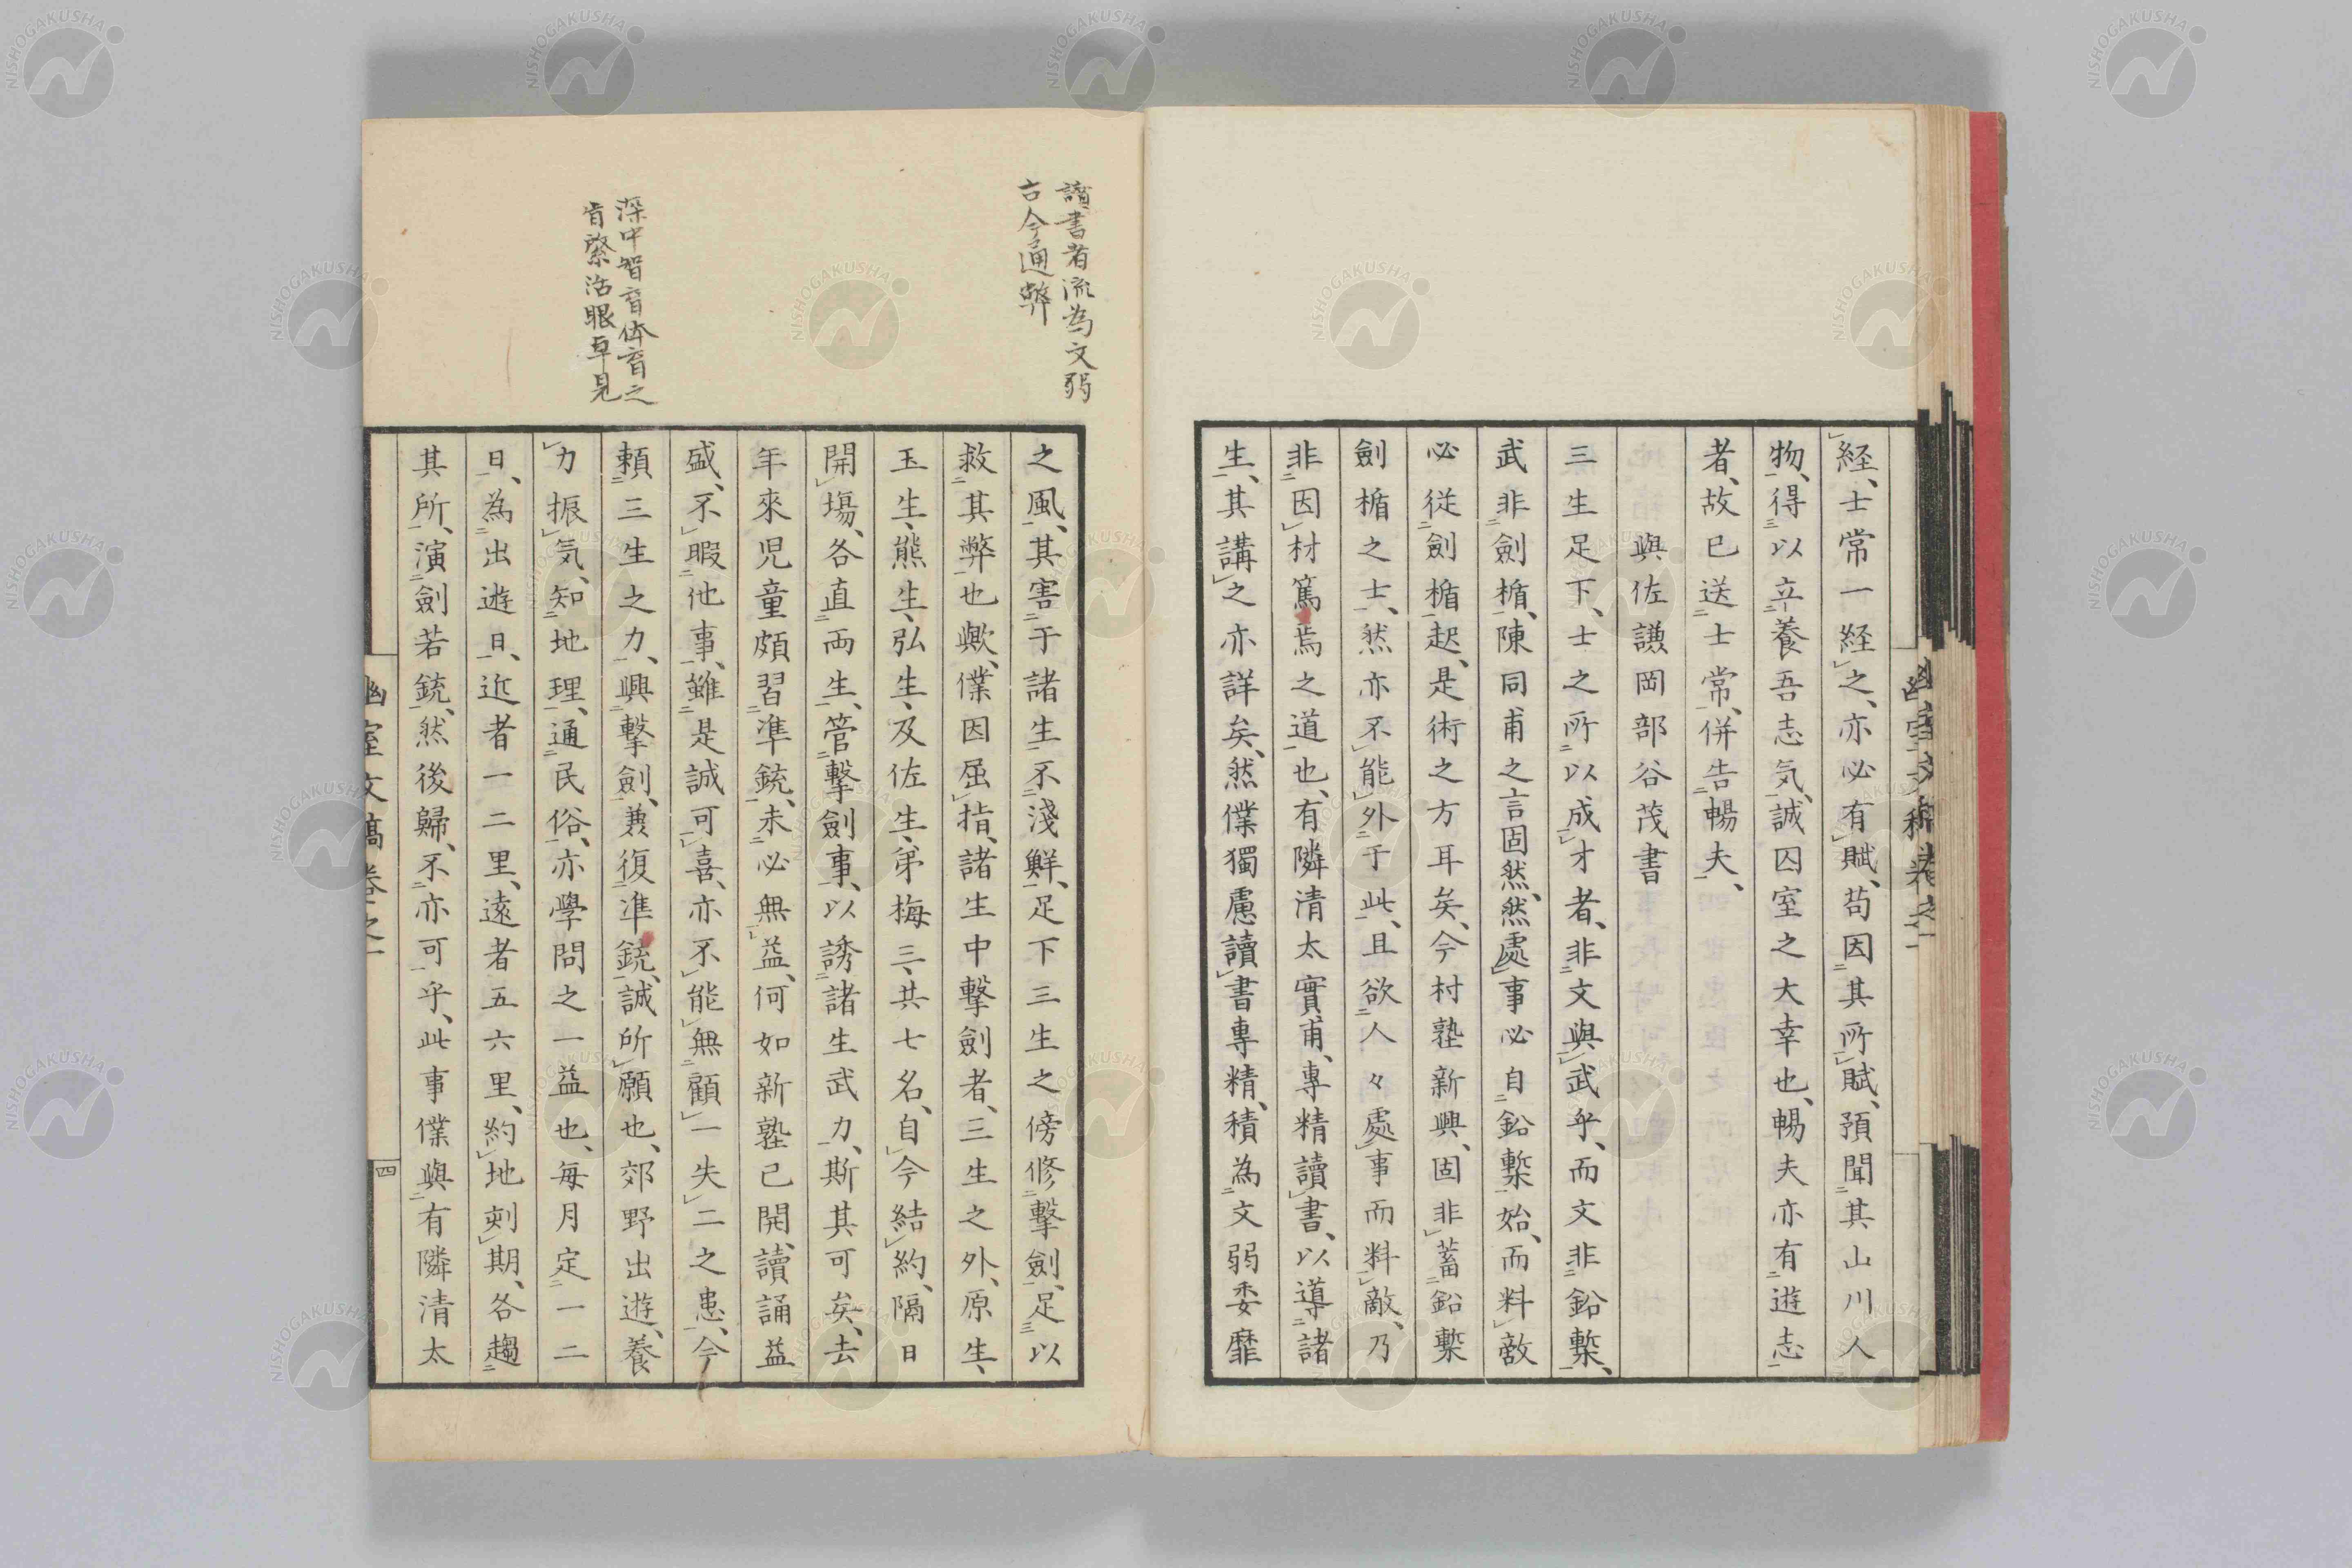 経、士常一経之、亦必有賦、苟因其所賦、預聞其山川人
物、得以立養吾志気、誠囚室之大幸也、暢夫亦有遊志
者、故已送士常、併告暢夫、
與佐謙岡部谷茂書
三生足下、士之所以成才者、非文與武乎、而文非鉛槧、
武非劍楯、陳同甫之言固然、然處事必自鉛槧始、而料敵
必従劍楯起、是術之方耳矣、今村塾新興、固非蓄鉛槧
劍楯之士、然亦不能外于此、且欲人々處事而料敵、乃
非因材篤焉之道也、有隣清太實甫、專精讀書、以導諸
生、其講之亦詳矣、然僕獨慮讀書專精、積為文弱委靡
讀書者流為文弱
古今通弊
深中智育体育之
肯綮活眼卓見
之風、其害于諸生不淺鮮、足下三生之傍修擊劍、足以
救其弊也歟、僕因屈指、諸生中擊劍者、三生之外、原生、
玉生、熊生、弘生、及佐生、弟梅三、共七名、自今結約、隔日
開場、各直両生、管擊劍事、以誘諸生武力、斯其可矣、去
年來児童頗習準銃、未必無益、何如新塾已開、讀誦益
盛、不暇他事、雖是誠可喜、亦不能無顧一失二之患、今
頼三生之力、興擊劍、兼復準銃、誠所願也、郊野出遊、養
力振気、知地理、通民俗、亦學問之一益也、毎月定一二
日、為出遊日、近者一二里、遠者五六里、約地刻期、各趨
其所、演劍若銃、然後歸、不亦可乎、此事僕與有隣清太
幽室文稿巻之一
四
NISHOGAKUSHA